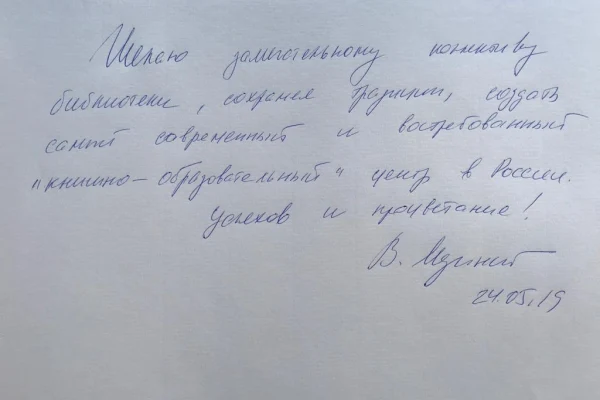 Желаю замечательному коллективу
библиотеки, сохраняя традиции, создать
самый современный и востребованный
"книжно-образовательный" центр в России.
Успехов и процветание!
В. Мединский
24.05.19